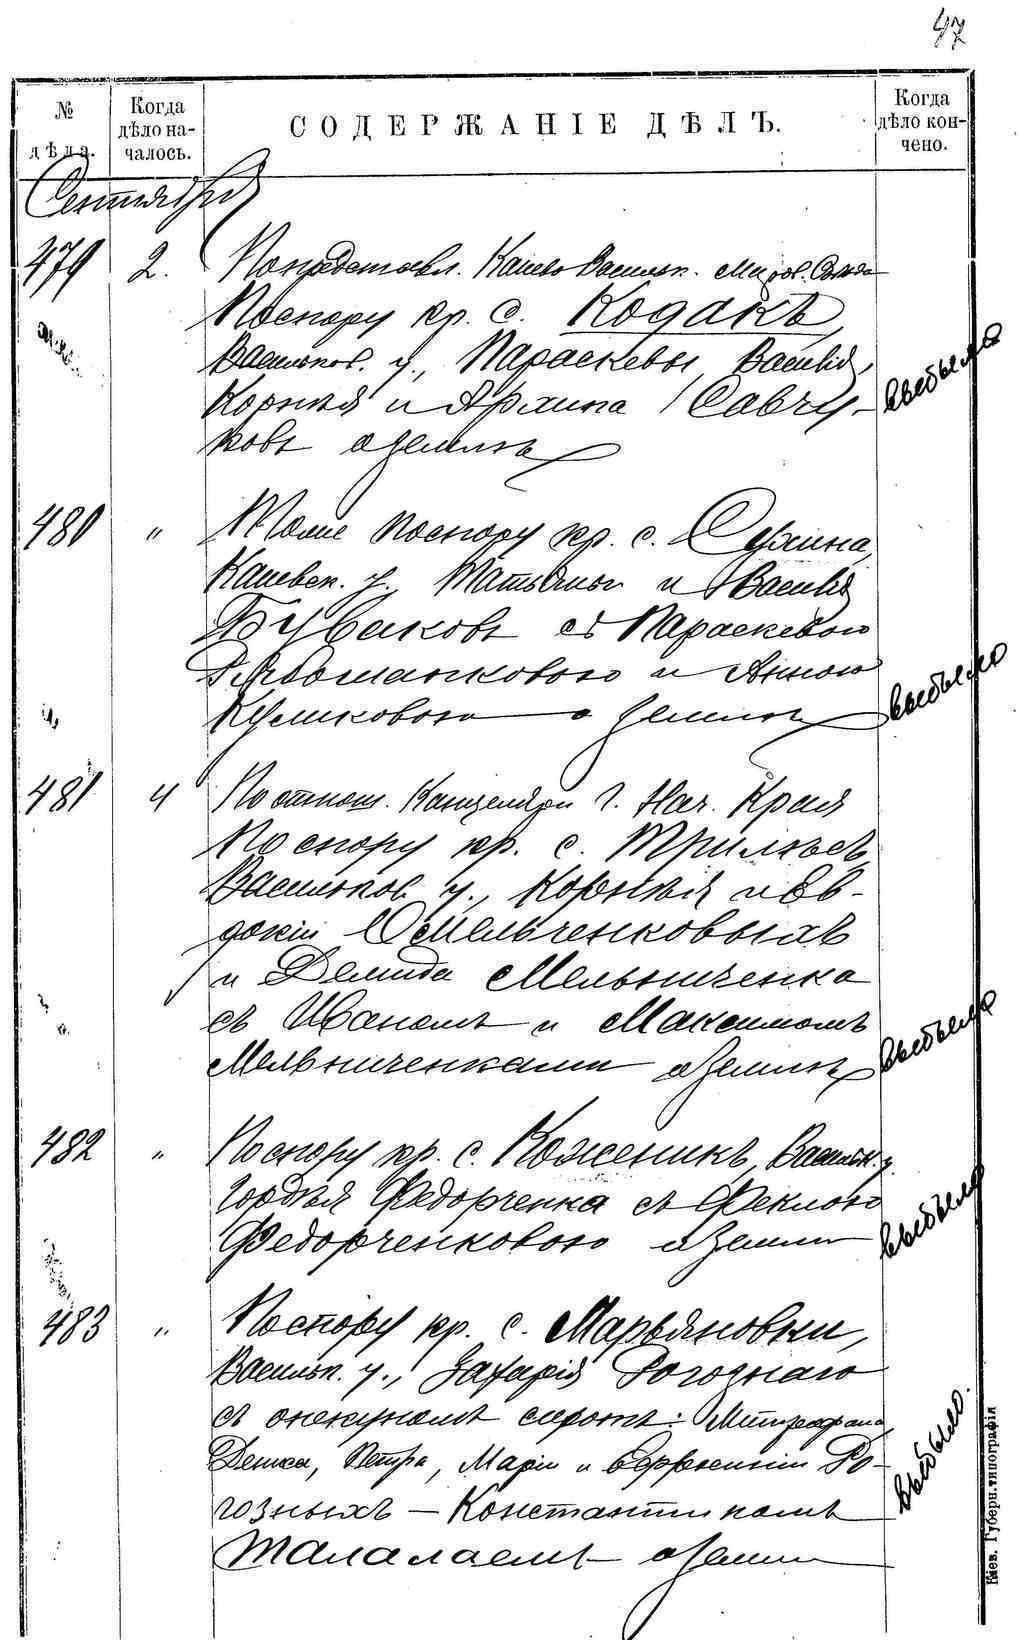 47
№ дѣла.
Когда дѣло началось.
СОДЕРЖАНІЕ ДѢЛЪ.
Когда дѣло кончено.
Сентября
479 2. По представл. Канево Васильк. Миров. Съѣзда
По спору кр. с. Кодакъ,
Васильков. у., Параскевы, Василія,
Корнѣя и Архипа Савчу-
ковъ о землѣ
выбыло
480 " Тоже по спору кр. с.
Каневск. у. Татьяны и Василія
съ Параскевою
и Анною
Куликовою о землѣ
выбыло
481 4 По отнош. Канцеляріи Г. Нач. Края
По спору кр. с. Трилѣсъ,
Васильков. у., Корнѣя и Ев-
докіи Омельченковыхъ
и Демида Мельниченка
съ Иваномъ и Максимомъ
Мельниченками о землѣ
выбыло
482 " По спору кр. с. Коженикъ, Васильк. у.
Гордѣя Федорченка съ Феклою
Федорченковою о земли
выбыло
483 " По спору кр. с. Марьяновки,
Васильк. у., Захарія Рогознаго
съ опекуномъ сиротъ: Митрофана,
Дениса, Петра, Маріи и Евфиміи Ро-
гозныхъ — Константиномъ
Талалаемъ о земли
выбыло.
Кіев. Губерн. типографія